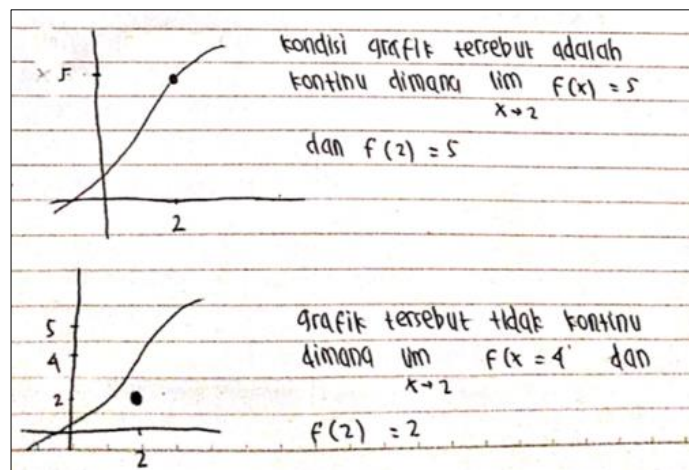 kondisi grafik tersebut adalah
5
kontinu dimana lim f(x) = 5
x→2
dan f(2) = 5
2
grafik tersebut tidak kontinu
5
dimana lim f(x = 4 dan
4
x→2
2
f(2) = 2
2